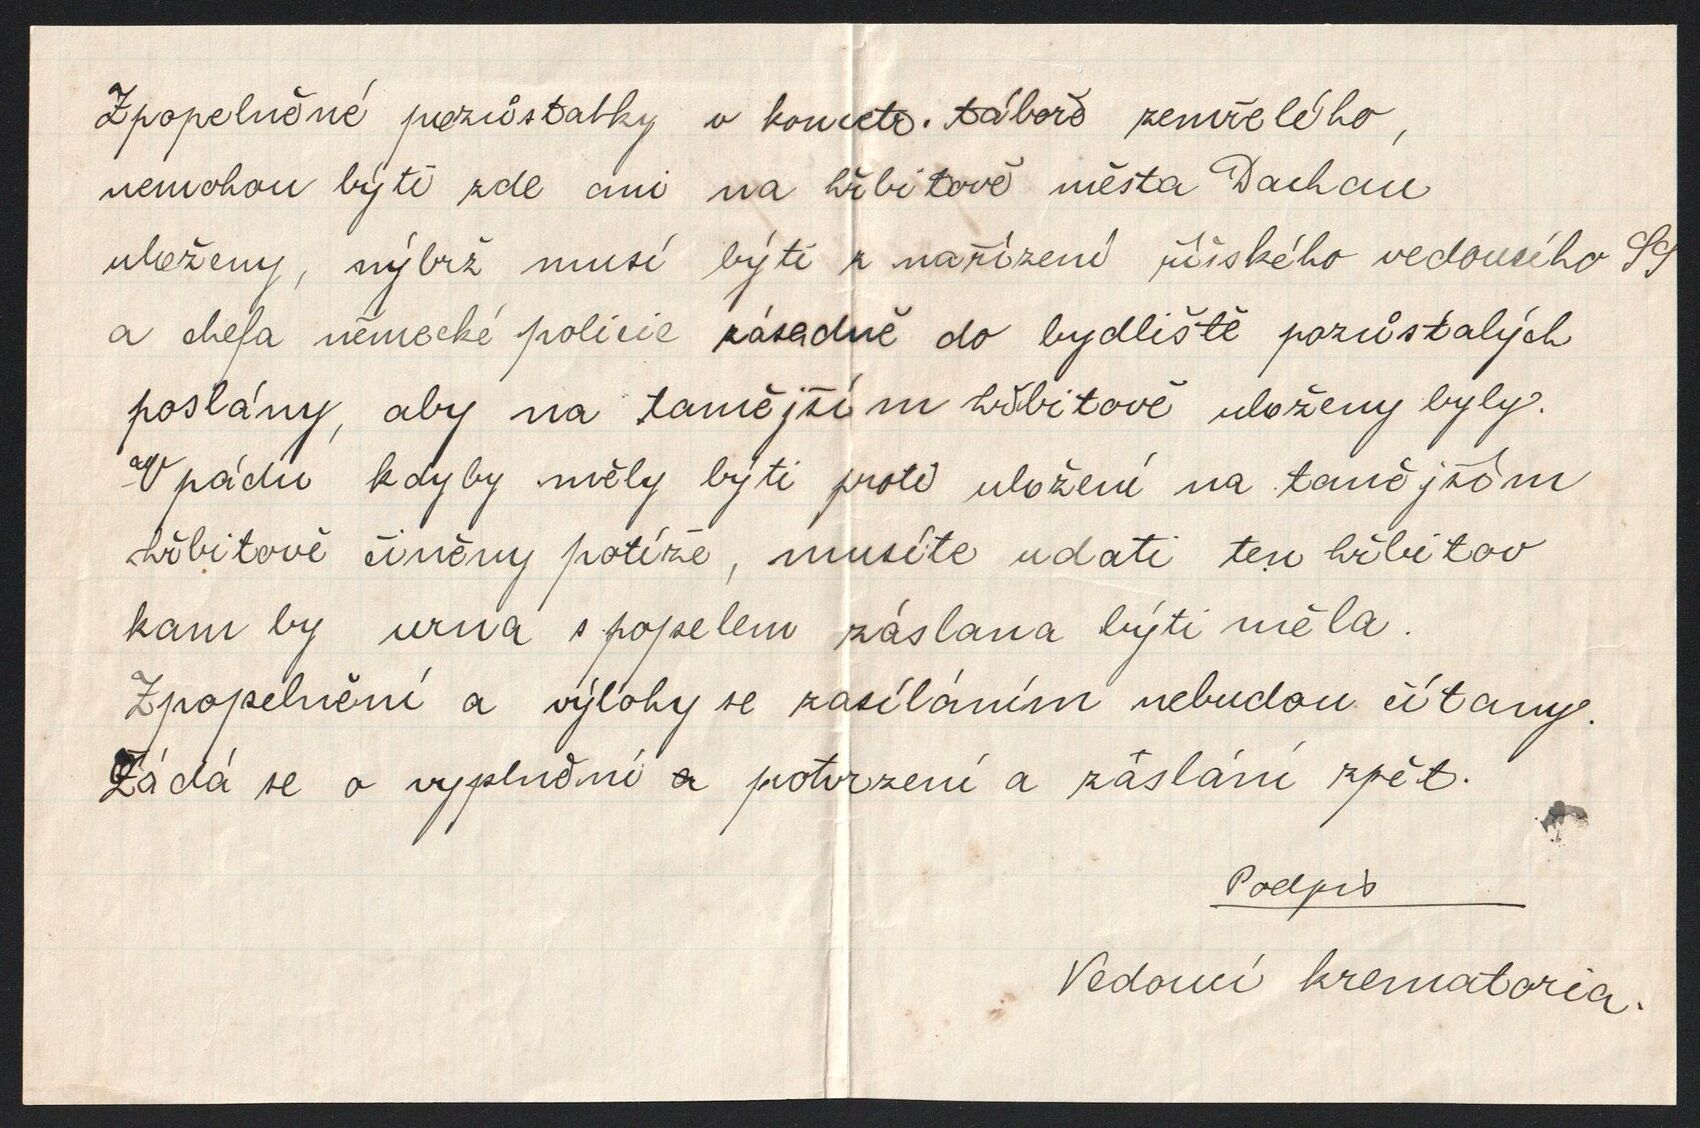 Zpopelněné pozůstatky v koncetr. táboře zemřelého,
nemohou býti zde ani na hřbitově města Dachau
uloženy, nýbrž musí býti z nařízení říšského vedoucího SS
a chefa německé policie zásadně do bydliště pozůstalých
poslány, aby na tamějším hřbitově uloženy byly.
V pádu kdyby měly býti proti uložení na tamějším
hřbitově činěny potíže, musíte udati ten hřbitov
kam by urna s popelem záslana býti měla.
Zpopelnění a výlohy se zasíláním nebudou čítany.
Žádá se o vyplnění a potvrzení a záslání zpět.
Podpis
Vedoucí krematoria.